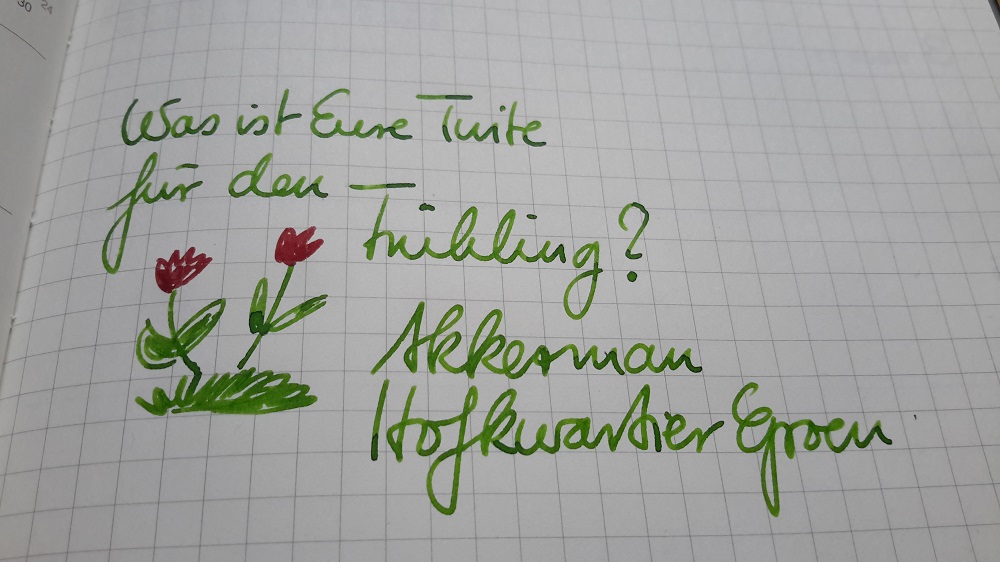 30 24
Was ist Eure Tinte
für den
Frühling?
Akkerman
Hofkwartier Groen